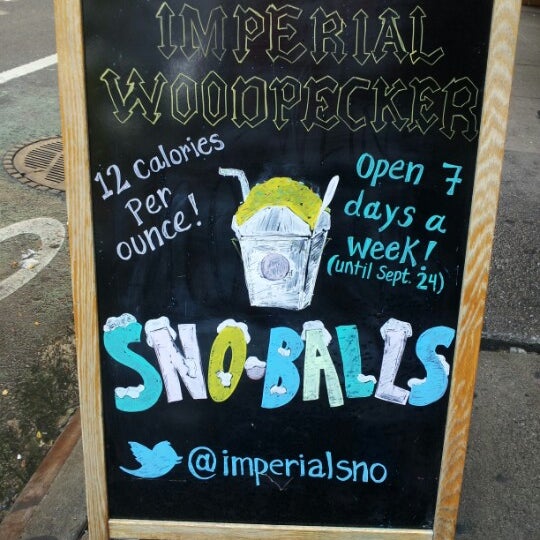 IMPERIAL
WOODPECKER
12 Calories
Per
ounce!
Open 7
days a
week!
(until Sept. 24)
SNO-BALLS
@imperialsno